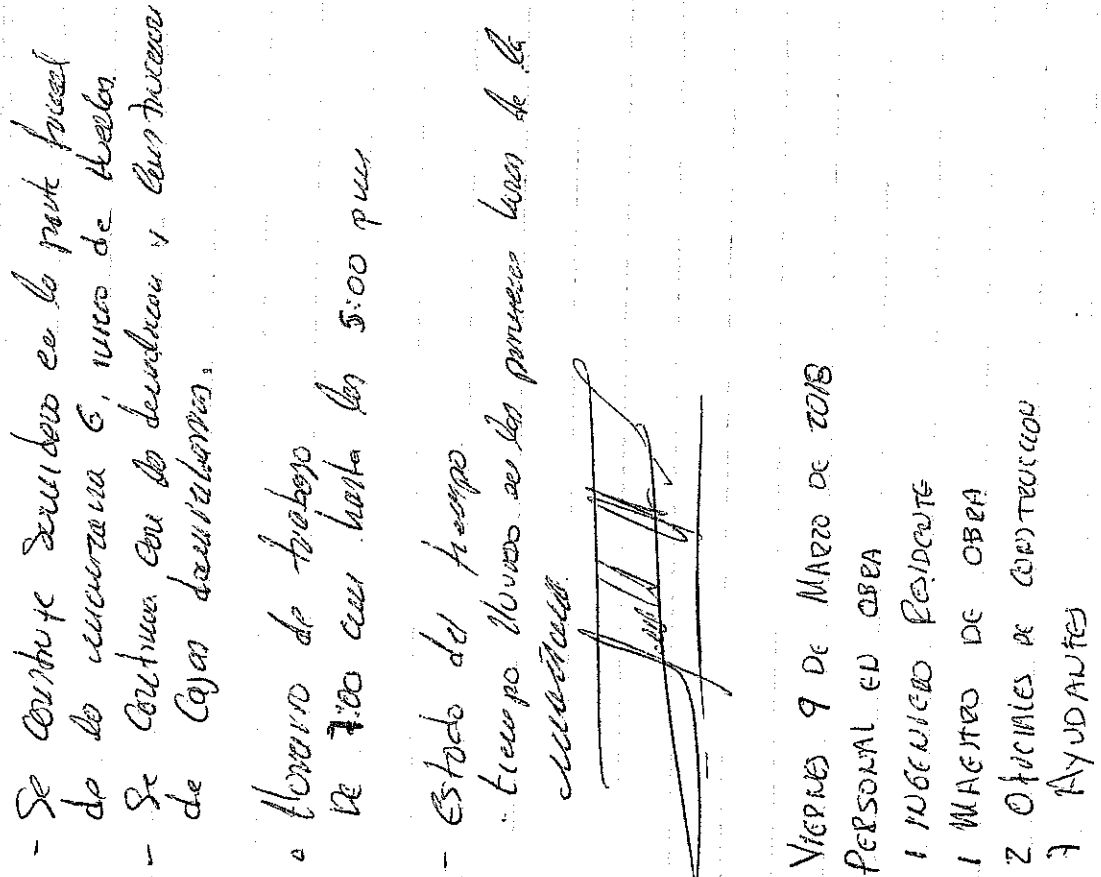 - Se construye sumidero en la parte
de la manzana G, inicio de
- Se continua con la demolicion y construccion
de Cajas domiciliarias.
• Horario de trabajo
De 7:00 am hasta las 5:00 pm
- Estado del tiempo
. tiempo lluvioso en las primeras horas de la
mañana
Viernes 9 De Marzo De 2018
Personal en obra
1 Ingeniero Residente
1 Maestro de obra
2 Oficiales de construccion
7 Ayudantes